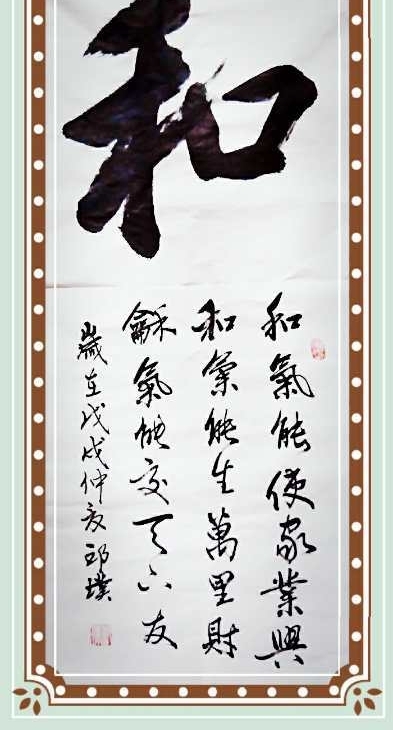 和
和氣能使家業興
和氣能生萬里財
龢氣能交天下友
歲在戊戌仲夏 邱墣